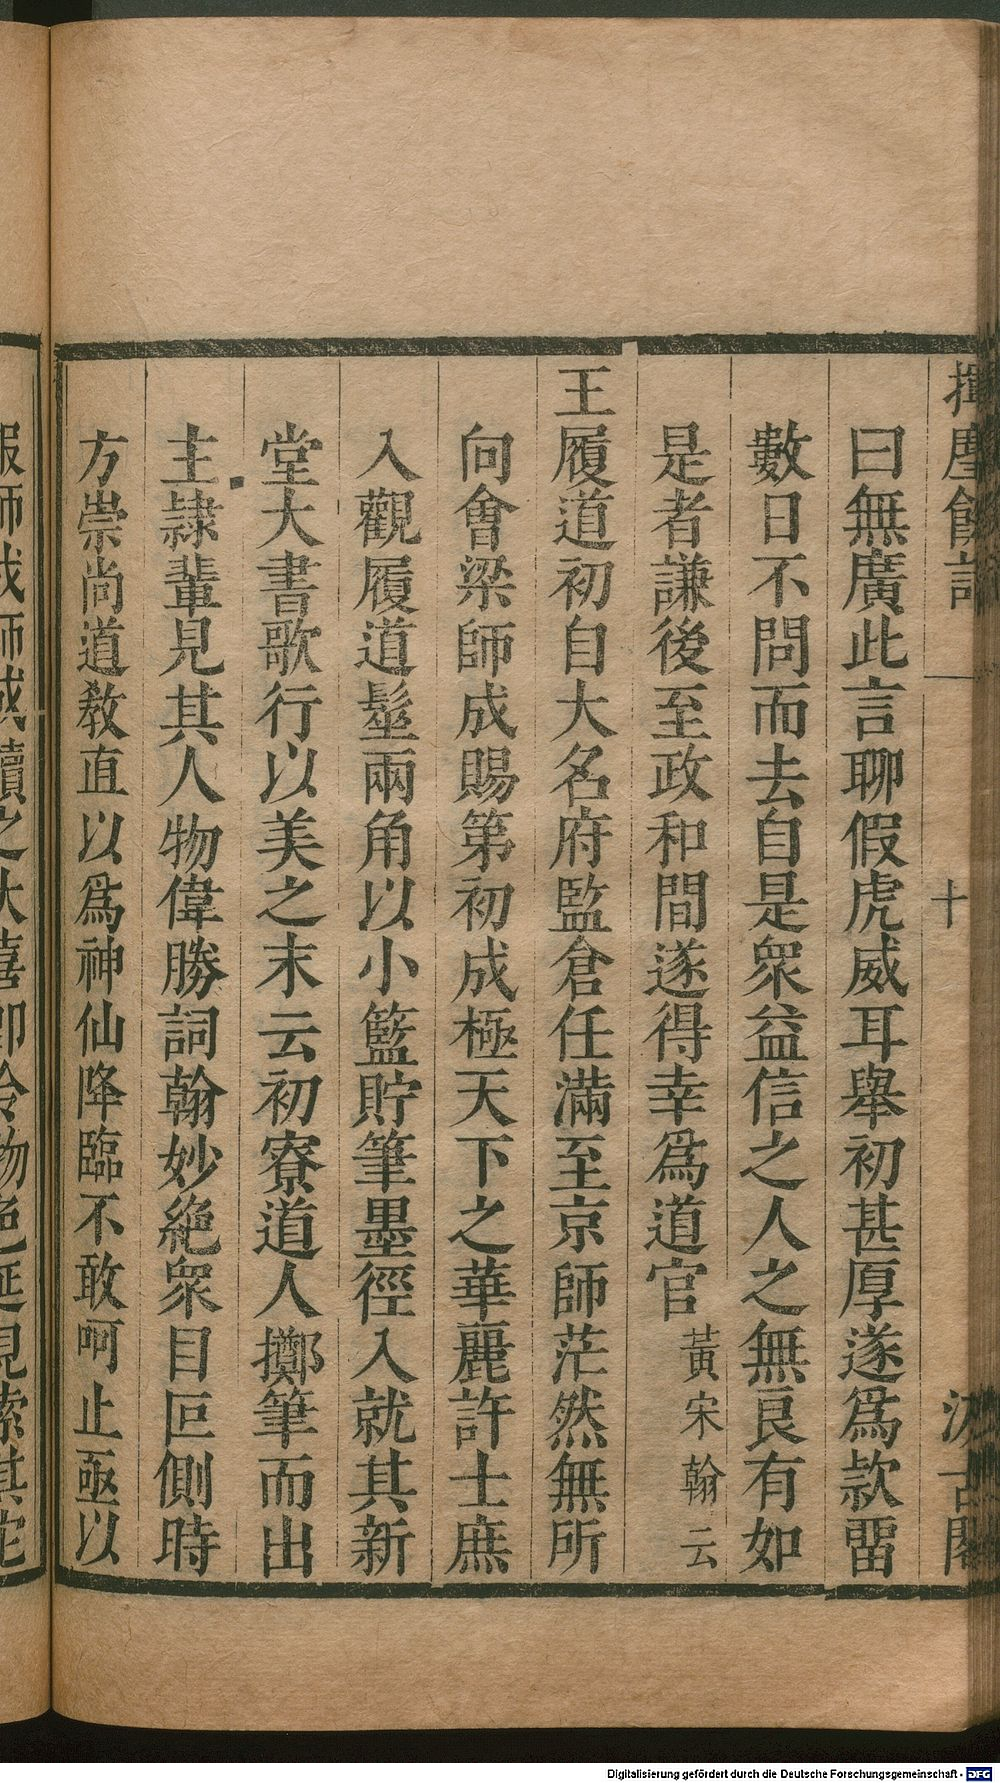 揮麈餘話 十 汲古閣
曰無廣此言聊假虎威耳舉初甚厚遂爲款畱
數日不問而去自是衆益信之人之無良有如
是者謙後至政和間遂得幸爲道官黃宋翰云
王履道初自大名府監倉任滿至京師茫然無所
向會梁師成賜第初成極天下之華麗許士庶
入觀履道髽兩角以小籃貯筆墨徑入就其新
堂大書歌行以美之末云初寮道人擲筆而出
主隷輩見其人物偉勝詞翰妙絶衆目叵側時
方崇尚道教直以爲神仙降臨不敢呵止亟以
報師成師成讀之大喜卽令物色延見索其它
Digitalisierung gefördert durch die Deutsche Forschungsgemeinschaft - DFG